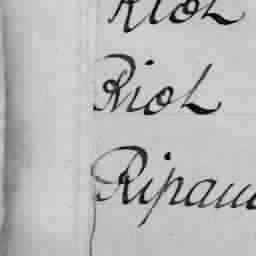 Riol
Riol
Ripau